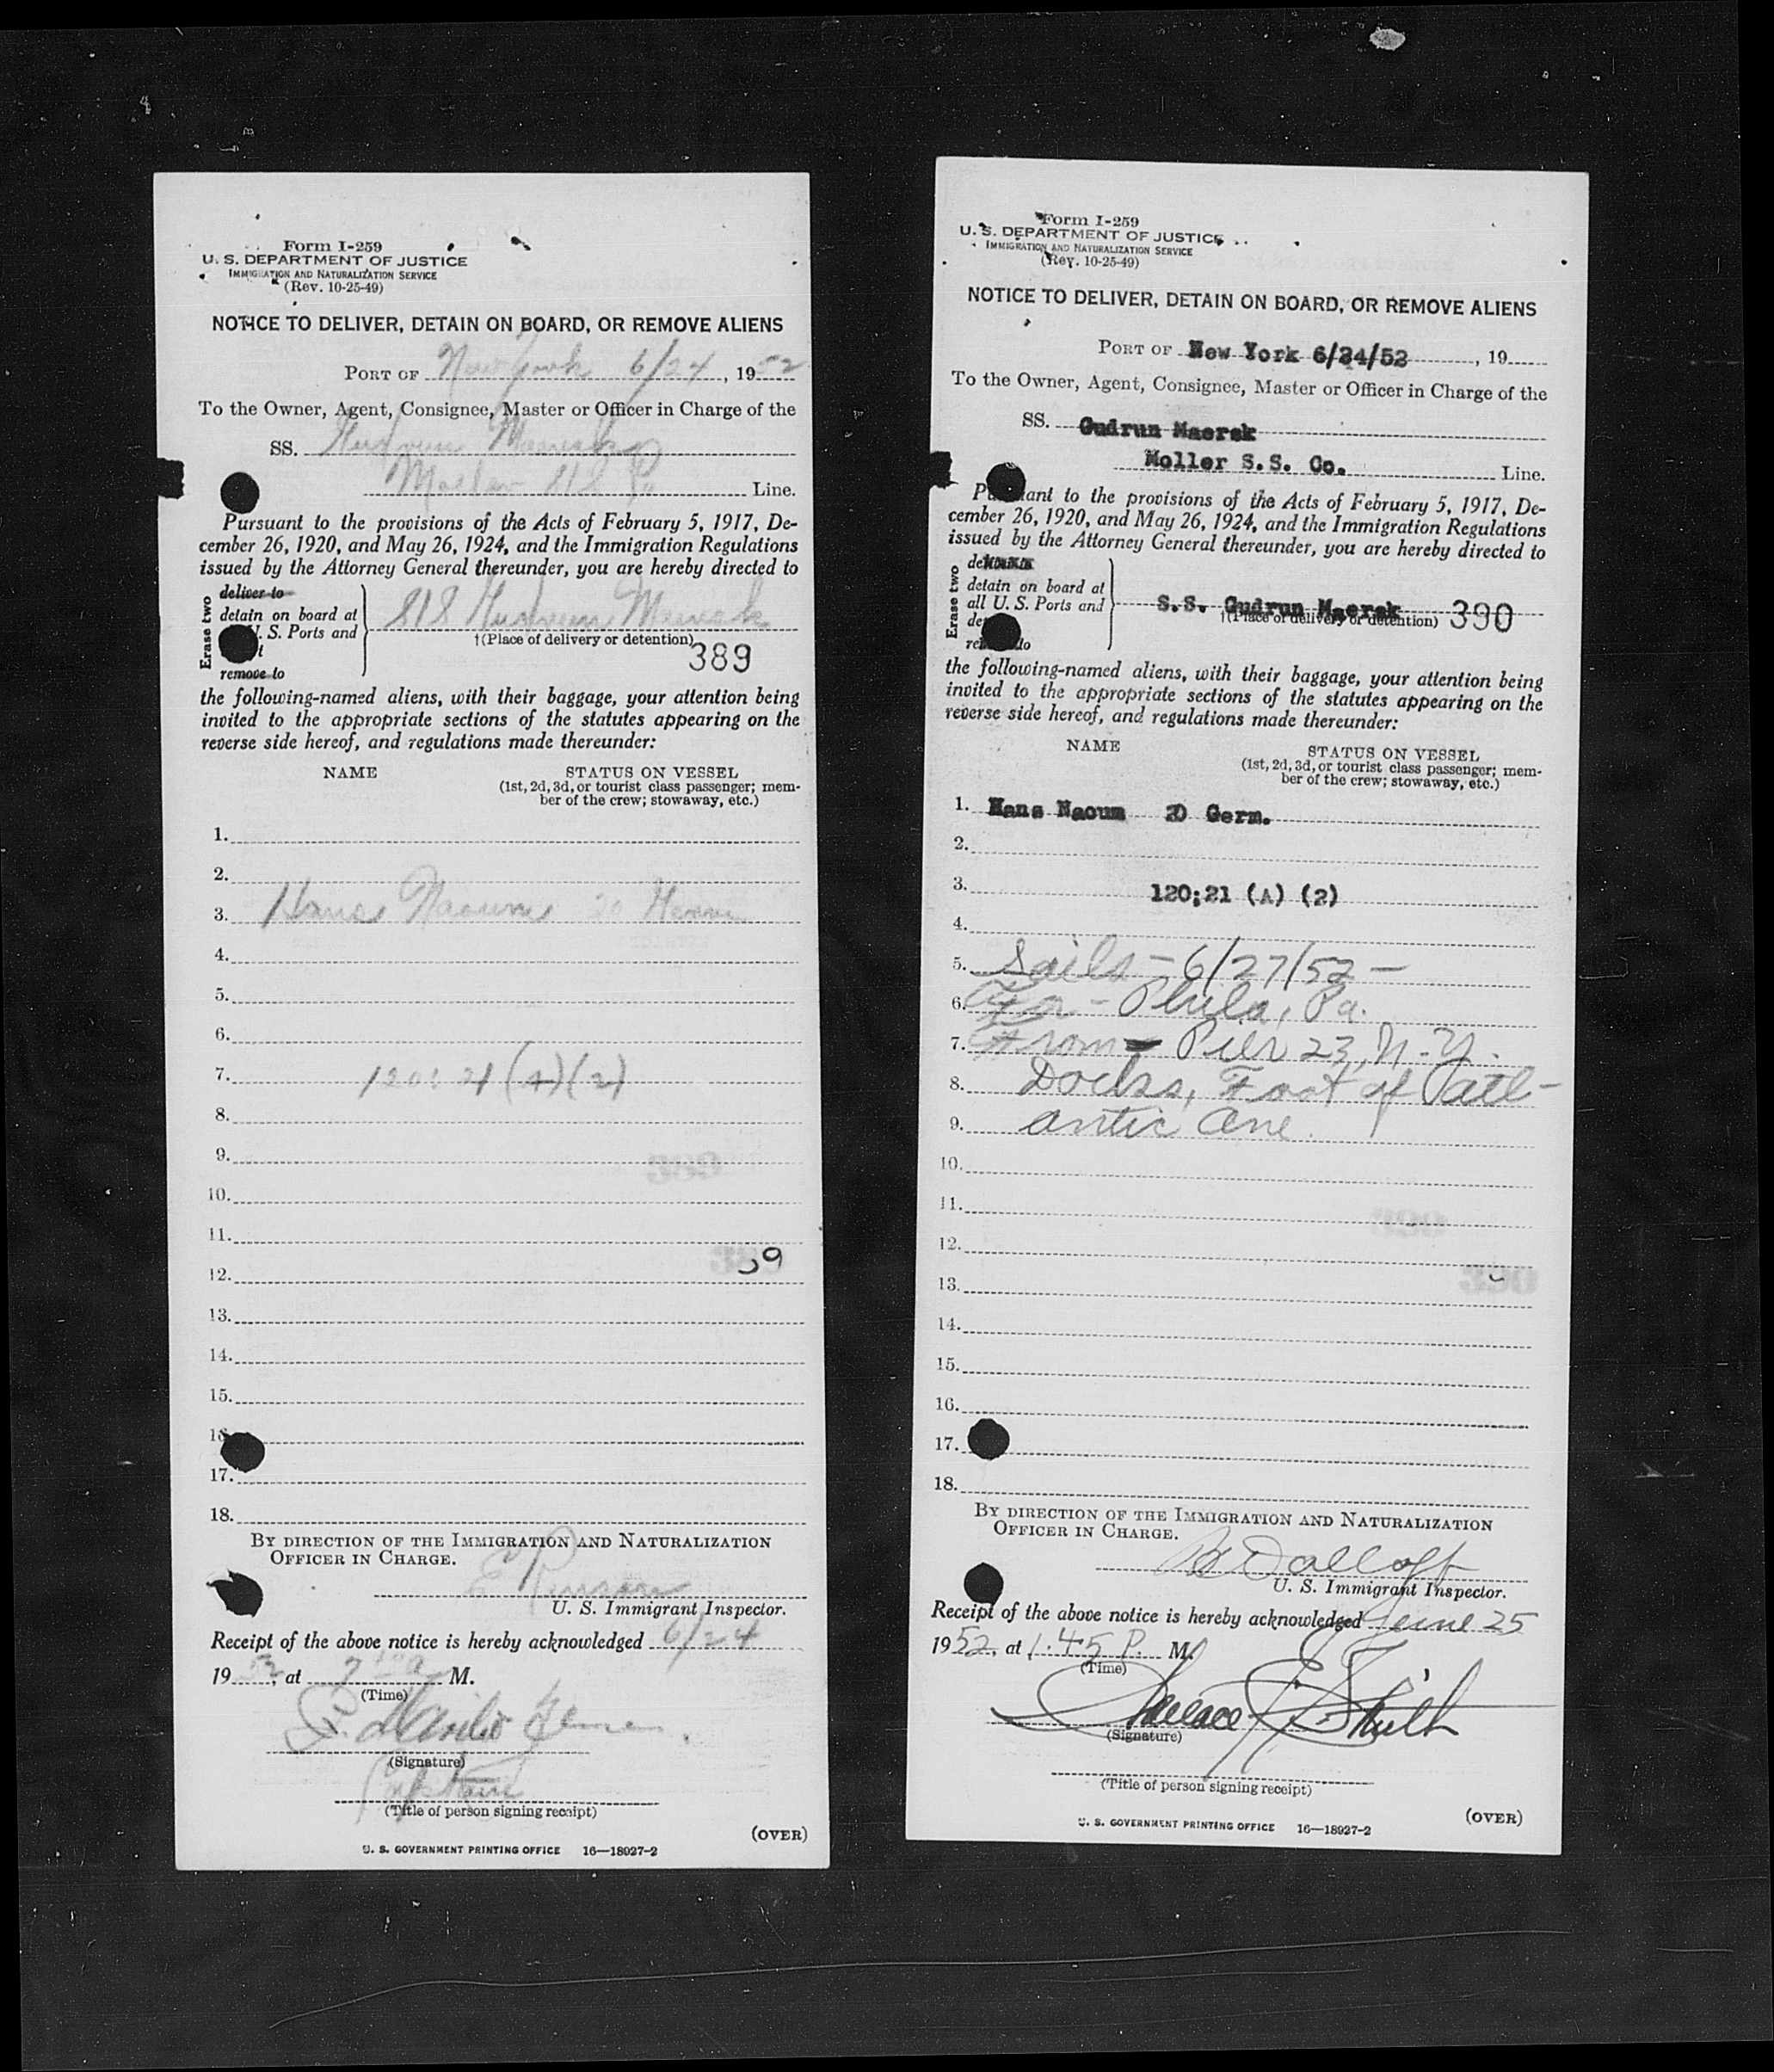 Form I-259
U. S. DEPARTMENT OF JUSTICE
IMMIGRATION AND NATURALIZATION SERVICE
(Rev. 10-25-49)
NOTICE TO DELIVER, DETAIN ON BOARD, OR REMOVE ALIENS
PORT OF New York 6/24, 1952
To the Owner, Agent, Consignee, Master or Officer in Charge of the
SS. Gudrun Maersk
Moller SS Co Line.
Pursuant to the provisions of the Acts of February 5, 1917, De-
cember 26, 1920, and May 26, 1924, and the Immigration Regulations
issued by the Attorney General thereunder, you are hereby directed to
Erase two
deliver to
detain on board at
U. S. Ports and
remove to
S/S Gudrun Maersk
†(Place of delivery or detention)
389
the following-named aliens, with their baggage, your attention being
invited to the appropriate sections of the statutes appearing on the
reverse side hereof, and regulations made thereunder:
NAME STATUS ON VESSEL
(1st, 2d, 3d, or tourist class passenger; mem-
ber of the crew; stowaway, etc.)
1.
2.
3. Hans Naoum 20
4.
5.
6.
7. 120:21 (A)(2)
8.
9.
10.
11.
12.
13.
14.
15.
16
17.
18.
BY DIRECTION OF THE IMMIGRATION AND NATURALIZATION
OFFICER IN CHARGE.
U. S. Immigrant Inspector.
Receipt of the above notice is hereby acknowledged 6/24
1952, at M.
(Time)
(Signature)
(Title of person signing receipt)
(OVER)
U. S. GOVERNMENT PRINTING OFFICE 16—18927-2
Form I-259
U. S. DEPARTMENT OF JUSTICE
IMMIGRATION AND NATURALIZATION SERVICE
(Rev. 10-25-49)
NOTICE TO DELIVER, DETAIN ON BOARD, OR REMOVE ALIENS
PORT OF New York 6/24/52, 19
To the Owner, Agent, Consignee, Master or Officer in Charge of the
SS. Gudrun Maersk
Moller S.S. Co. Line.
Pursuant to the provisions of the Acts of February 5, 1917, De-
cember 26, 1920, and May 26, 1924, and the Immigration Regulations
issued by the Attorney General thereunder, you are hereby directed to
Erase two
detain on board at
all U. S. Ports and
S.S. Gudrun Maersk
†(Place of delivery or detention)
390
the following-named aliens, with their baggage, your attention being
invited to the appropriate sections of the statutes appearing on the
reverse side hereof, and regulations made thereunder:
NAME STATUS ON VESSEL
(1st, 2d, 3d, or tourist class passenger; mem-
ber of the crew; stowaway, etc.)
1. Hans Naoum 20 Germ.
2.
3. 120;21 (A) (2)
4.
5. Sails - 6/27/52 -
6. For - Phila, Pa.
7. From - Pier 23, N.Y.
8. Docks, Foot of Atl-
9. antic Ave.
10.
11.
12.
13.
14.
15.
16.
17.
18.
BY DIRECTION OF THE IMMIGRATION AND NATURALIZATION
OFFICER IN CHARGE.
U. S. Immigrant Inspector.
Receipt of the above notice is hereby acknowledged June 25
1952, at 1:45 P. M.
(Time)
(Signature)
(Title of person signing receipt)
(OVER)
U. S. GOVERNMENT PRINTING OFFICE 16—18927-2